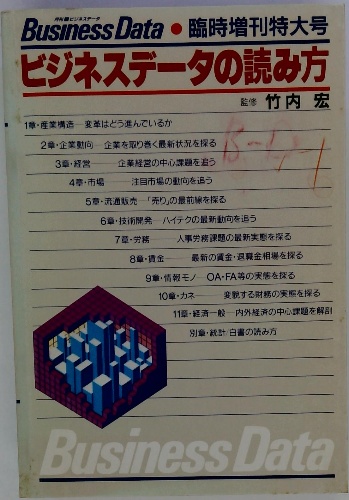 月刊ビジネスデータ
Business Data ● 臨時増刊特大号
ビジネスデータの読み方
監修 竹内 宏
1章・産業構造―変革はどう進んでいるか
2章・企業動向―企業を取り巻く最新状況を探る
3章・経営――企業経営の中心課題を追う
4章・市場――注目市場の動向を追う
5章・流通販売―「売り」の最前線を探る
6章・技術開発―ハイテクの最新動向を追う
7章・労務――人事労務課題の最新実態を探る
8章・賃金――最新の賃金・退職金相場を探る
9章・情報モノ―OA・FA等の実態を探る
10章・カネ――変貌する財務の実態を探る
11章・経済一般―内外経済の中心課題を解剖
別章・統計/白書の読み方
Business Data